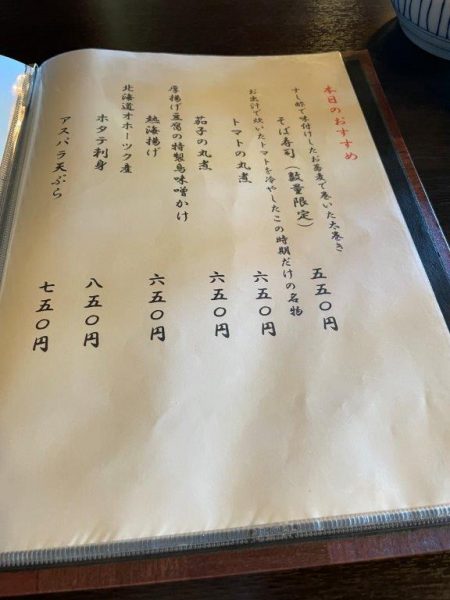 本日のおすすめ
すし酢で味付けしたお蕎麦で巻いた太巻き
そば寿司（数量限定）
五五〇円
お出汁で炊いたトマトを冷やしたこの時期だけの名物
トマトの丸煮
六五〇円
茄子の丸煮
六五〇円
厚揚げ豆腐の特製鳥味噌かけ
熱海揚げ
六五〇円
北海道オホーツク産
ホタテ刺身
八五〇円
アスパラ天ぷら
七五〇円